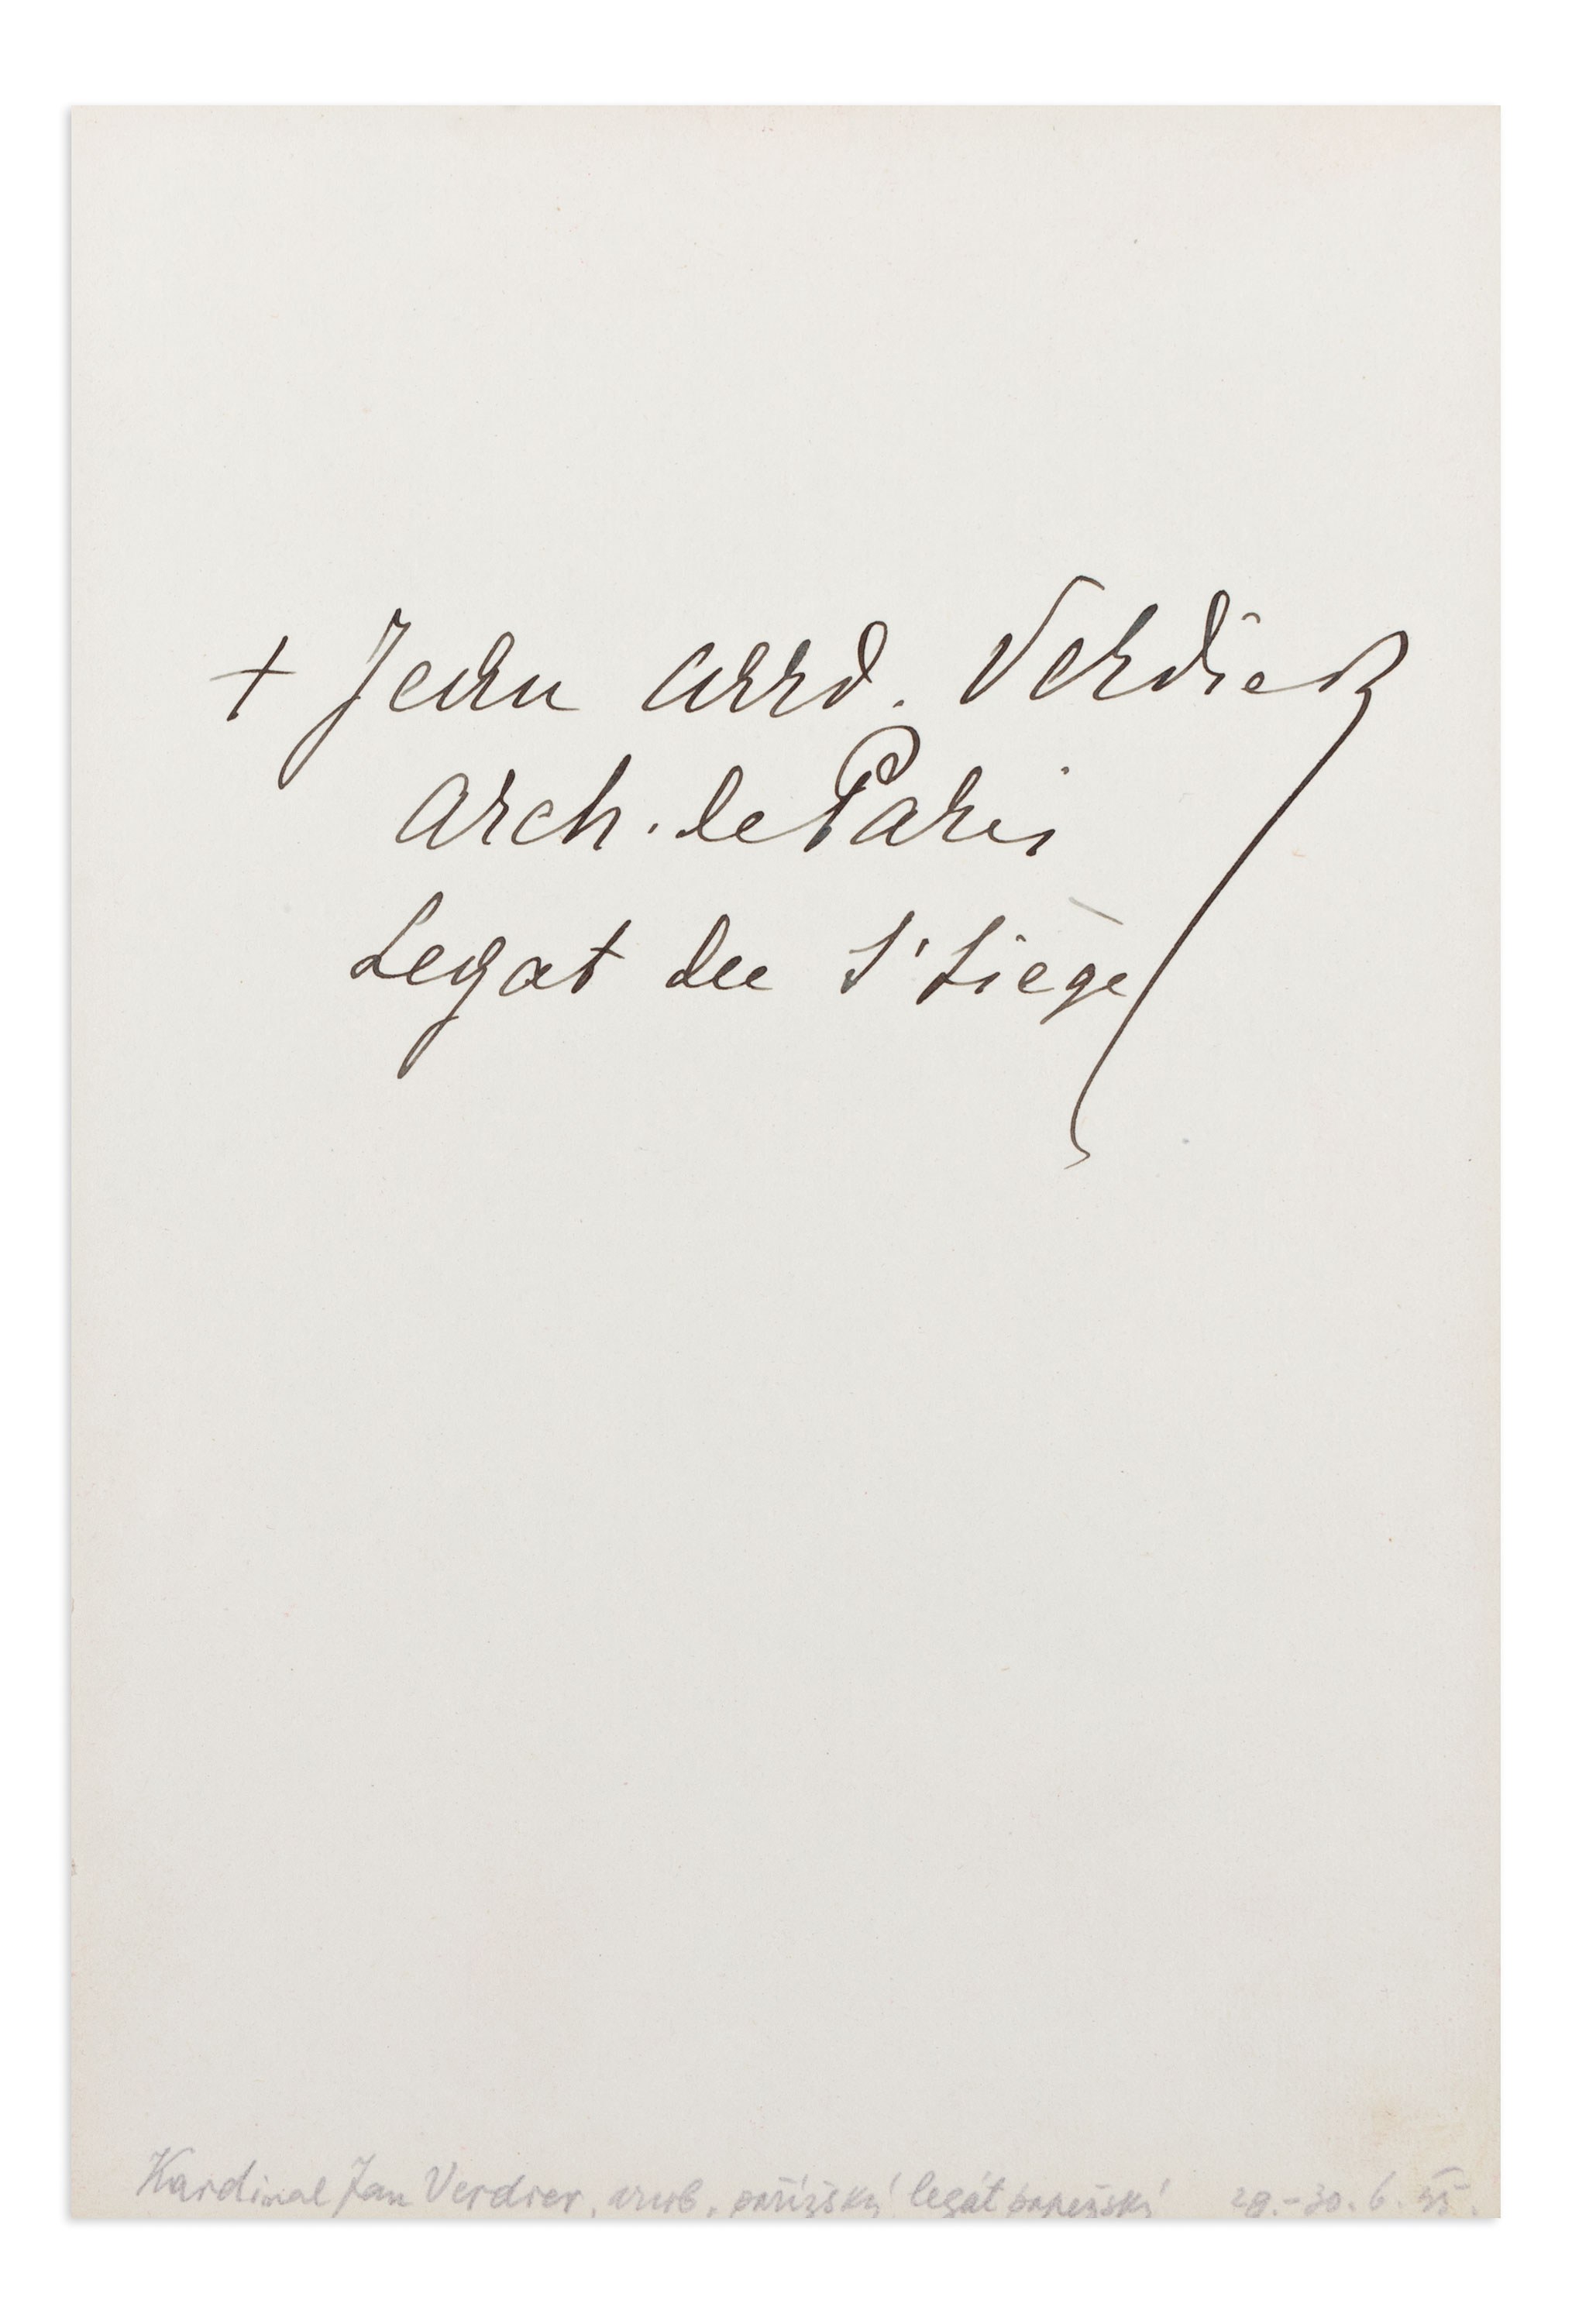 + Jean Card. Verdier
Arch. de Paris
Legat du St Siège
Kardinal Jan Verdier, arcib. pařížský legát papežský 28.-30. 6. 35.